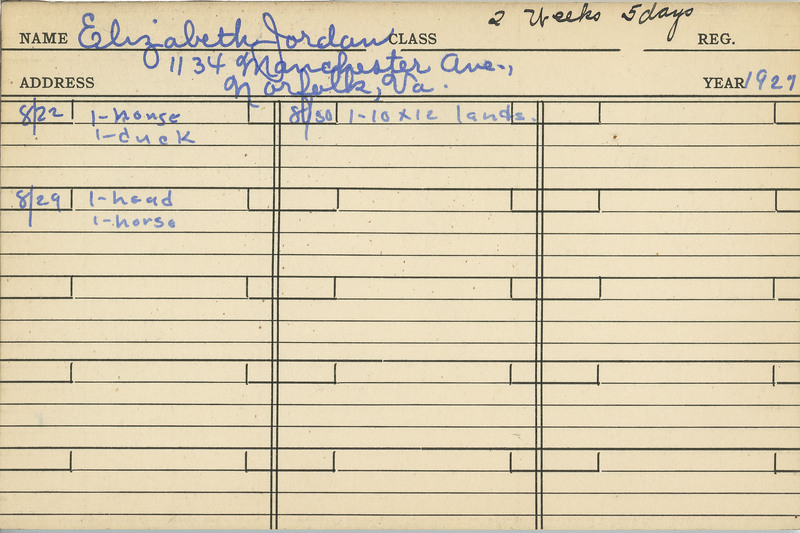 2 Weeks 5 days
NAME Elizabeth Jordan CLASS REG.
1134 Manchester Ave.,
ADDRESS Norfolk, Va. YEAR 1927
8/22 1-horse
1-duck
8/29 1-head
1-horse
8/30 1-10x12 lands.